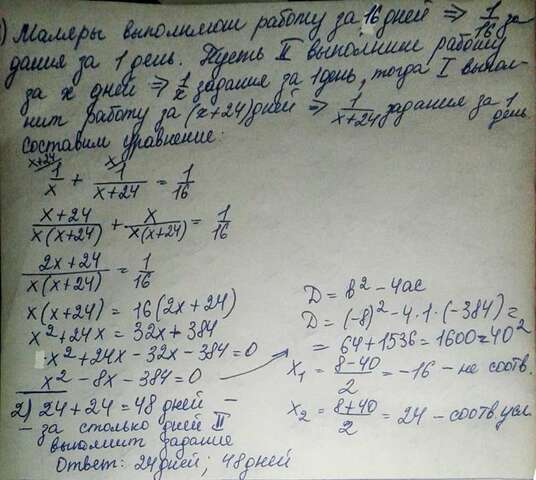 ) Маляры выполнили работу за 16 дней ⇒ 1/16 за
дания за 1 день. Пусть II выполнит работу
за x дней ⇒ 1/x задания за 1 день, тогда I выпол-
нит работу за (x+24) дней ⇒ 1/(x+24) задания за 1 день
составим уравнение:
x+24 x
1/x + 1/(x+24) = 1/16
(x+24)/(x(x+24)) + x/(x(x+24)) = 1/16
(2x+24)/(x(x+24)) = 1/16
x(x+24) = 16(2x+24)
x²+24x = 32x+384
x²+24x-32x-384=0
x²-8x-384=0
D = b²-4ac
D = (-8)²-4·1·(-384)=
= 64+1536=1600=40²
x₁ = (8-40)/2 = -16 - не соотв.
x₂ = (8+40)/2 = 24 - соотв. усл
2) 24+24=48 дней -
- за столько дней II
выполнит задание
Ответ: 24дней; 48дней